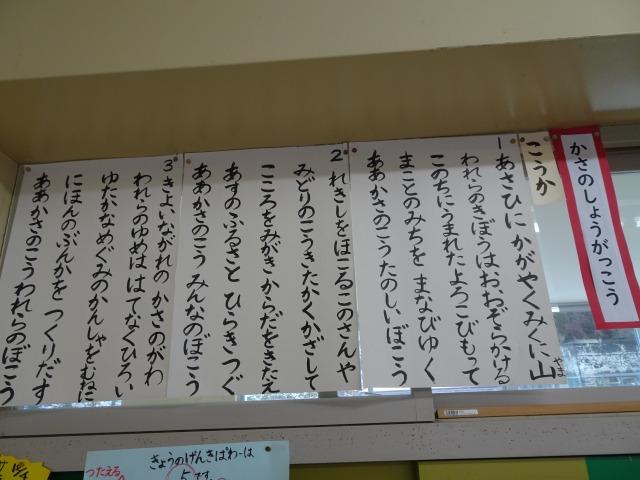 かさのしょうがっこう
こうか
1 あさひに かがやくみくに山
やま
われらのきぼうは おおぞらかける
このちにうまれた よろこびもって
まことのみちを まなびゆく
ああかさのこう たのしいぼこう
2 れきしをほこる このさんや
みどりのこうき たかくかざして
こころをみがき からだをきたえ
あすのふるさと ひらきつぐ
ああかさのこう みんなのぼこう
3 きよいながれの かさのがわ
われらのゆめは はてなくひろい
ゆたかなめぐみの かんしゃをむねに
にほんのぶんかを つくりだす
ああかさのこう われらのぼこう
きょうのげんきぱわーは
5です
つたえる